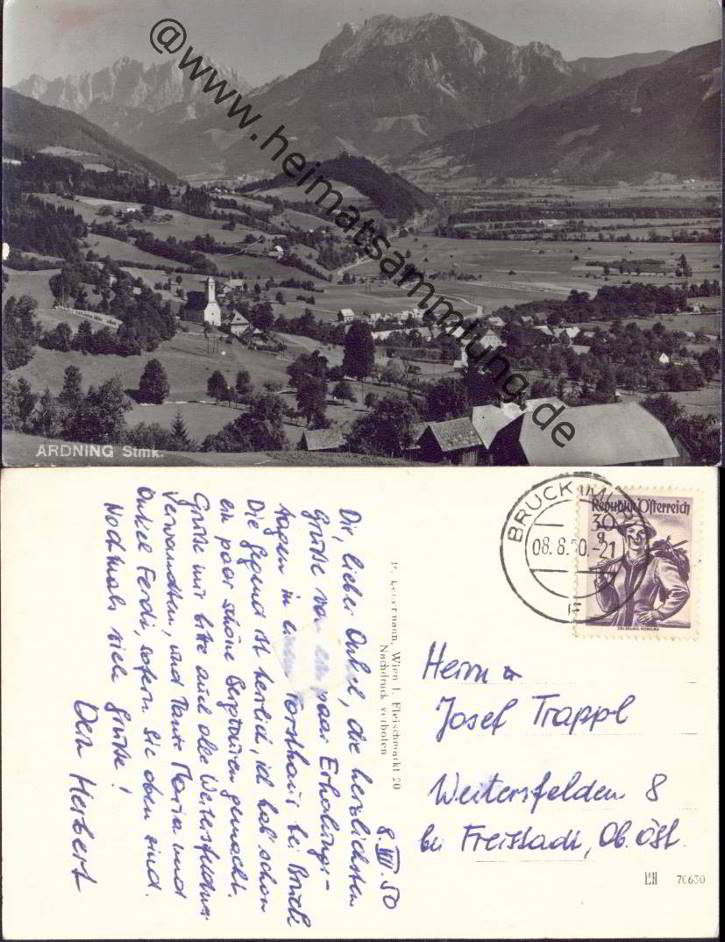 @www.heimatsammlung.de
ARDNING Stmk.
BRUCK (MUR)
08.8.50.-21
Republik Österreich
30
g
8.VIII.50
Dir, lieber Onkel, die herzlichsten
Grüße von ein paar Erholungs-
tagen in einem Forsthaus bei Bruck
Die Gegend ist herrlich, ich hab' schon
ein paar schöne Bergtouren gemacht.
Grüße mir bitte auch alle Weitersfeldner
Verwandten, und Tante Maria und
Onkel Ferdi, sofern sie oben sind.
Nochmals viele Grüße!
Dein Herbert
Wien I, Fleischmarkt 20
Nachdruck verboten
Herrn
Josef Trappl
Weitersfelden 8
bei Freistadt, Ob.Öst.
70630